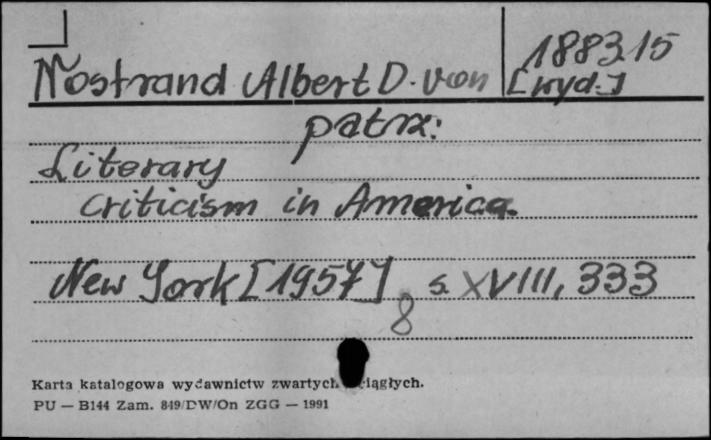 188315
Nostrand Albert D. von [wyd.]
patrz:
Literary
Criticism in America.
New York [1957] s. XVIII, 333
8
Karta katalogowa wydawnictw zwartych ciągłych.
PU — B144 Zam. 849/DW/On ZGG — 1991